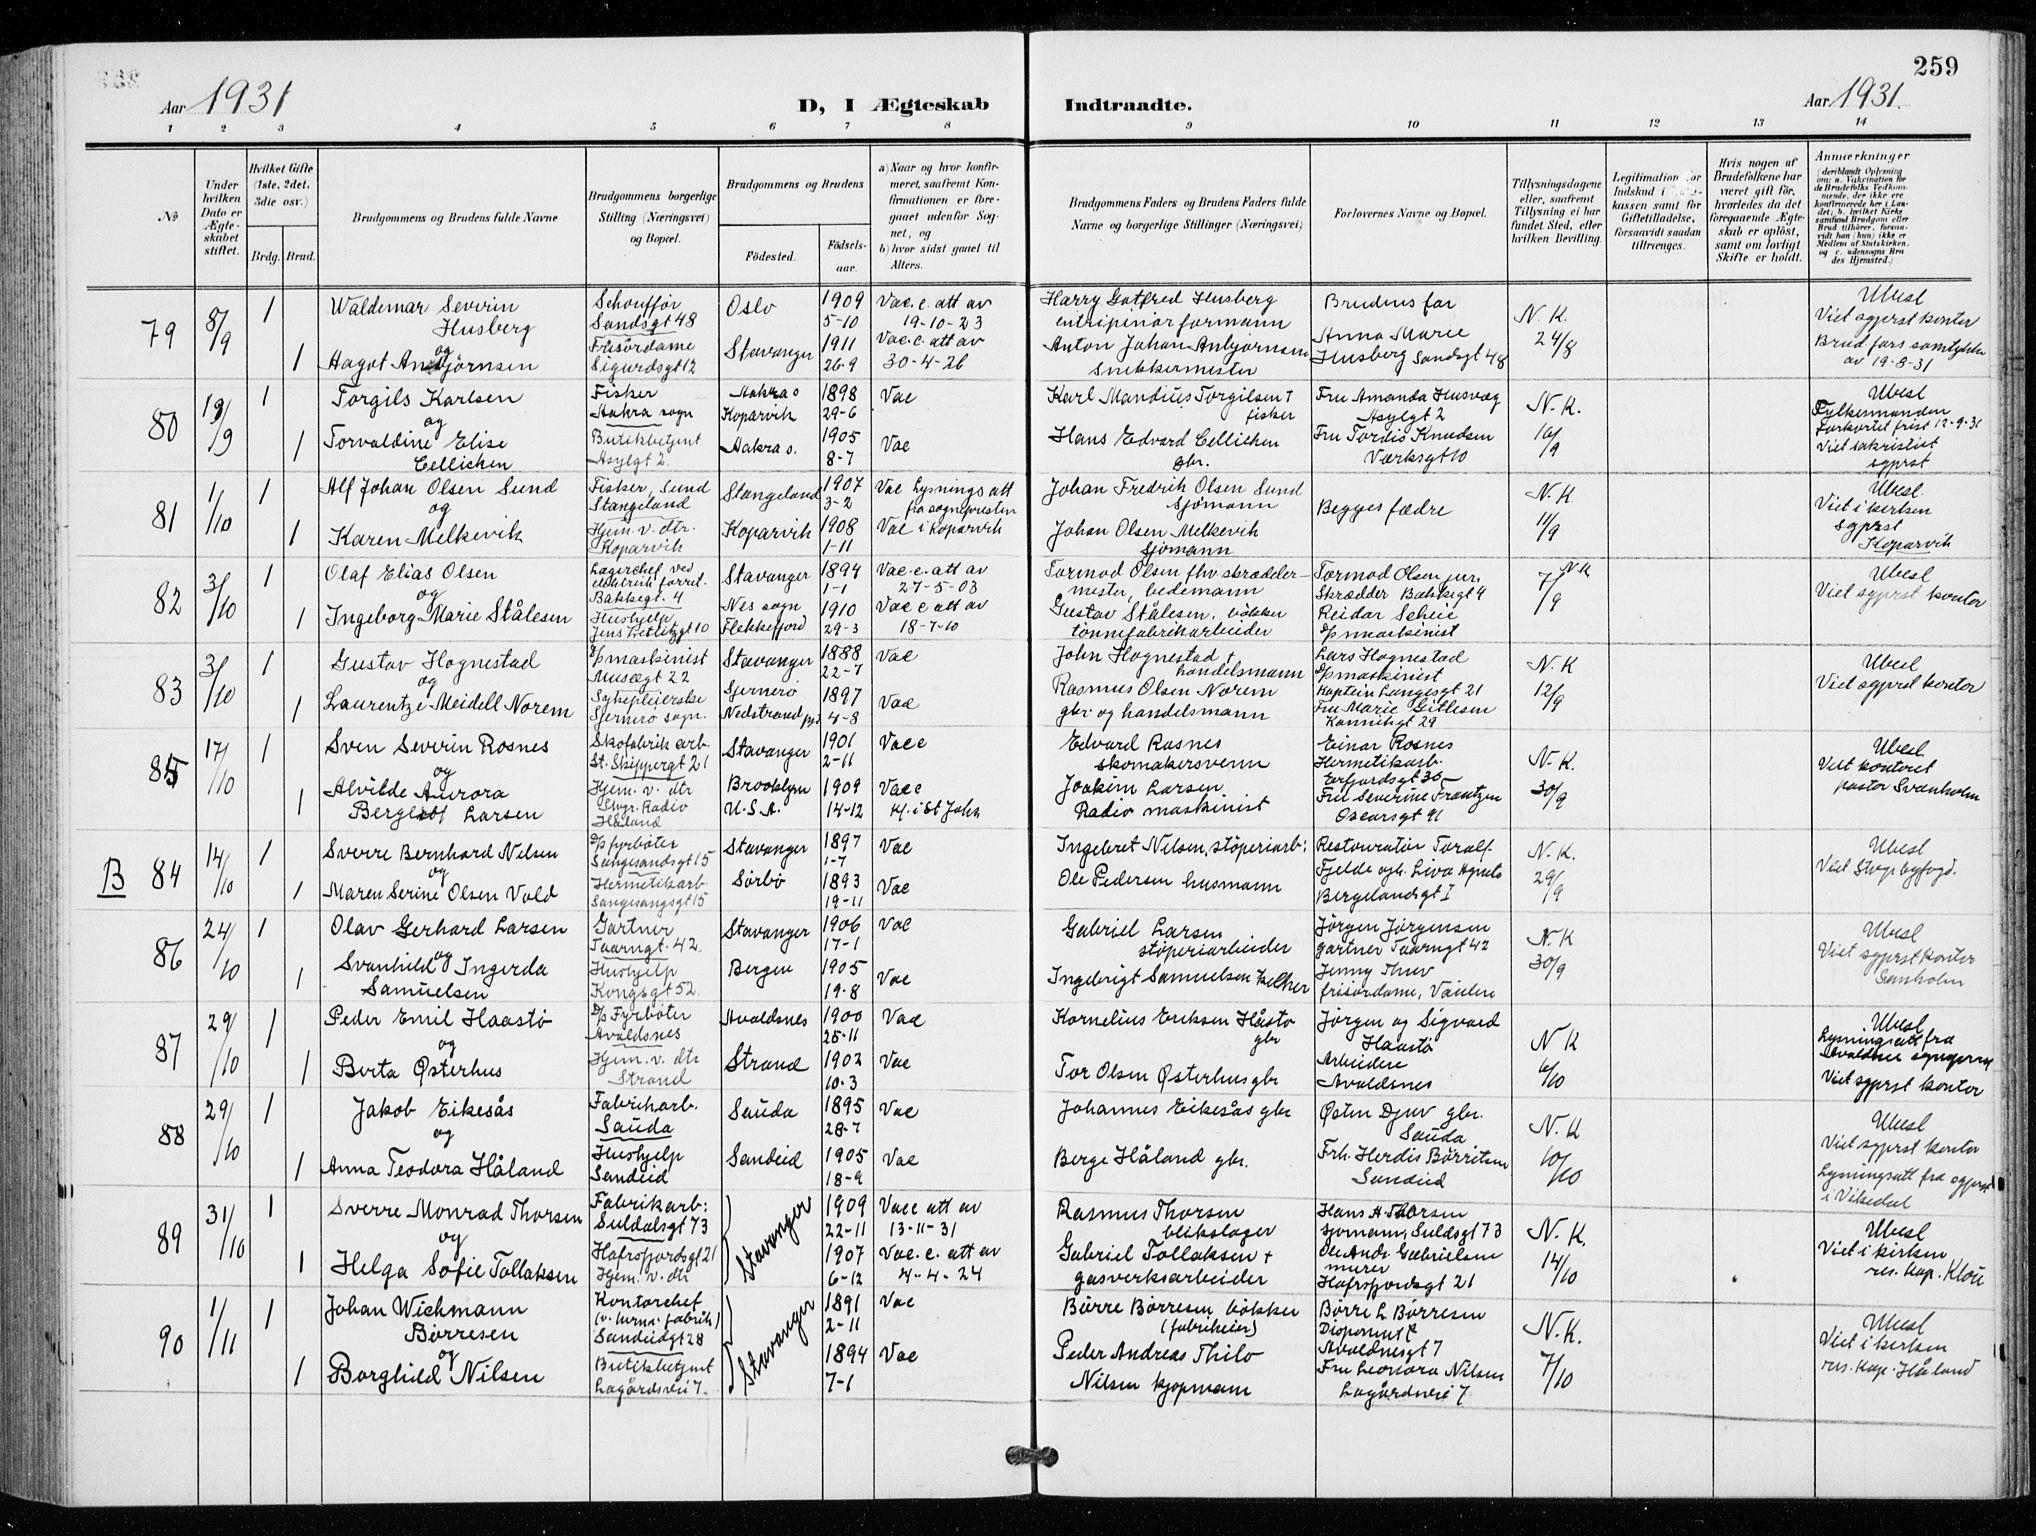 259
Aar 1931
D, I Ægteskab
Indtraadte.
Aar 1931.
1 2 3 4 5 6 7 8 9 10 11 12 13 14
No
Under hvilken Dato er Ægteskabet stiftet.
Hvilket Gifte (1ste, 2det, 3die osv.)
Brdg. Brud.
Brudgommens og Brudens fulde Navne
Brudgommens borgerlige Stilling (Næringsvei) og Bopæl.
Brudgommens og Brudens
Fødested.
Fødselsaar.
a) Naar og hvor konfirmeret, saafremt Konfirmationen er foregaaet udenfor Sognet, og
b) hvor sidst gaaet til Alters.
Brudgommens Faders og Brudens Faders fulde Navne og borgerlige Stillinger (Næringsvei)
Forlovernes Navne og Bopæl.
Tillysningsdagene eller, saafremt Tillysning ei har fundet Sted, efter hvilken Bevilling.
Legitimation for Indskud i Enkekassen samt for Giftetilladelse, forsaavidt saadan tiltrænges.
Hvis nogen af Brudefolkene har været gift før, hvorledes da det foregaaende Ægteskab er opløst, samt om lovligt Skifte er holdt.
Anmærkninger
(deriblandt Oplysning om: a. Vakcination for de Brudefolks Vedkommende, der ikke ere konfirmerede her i Landet; b. hvilket Kirkesamfund Brudgom eller Brud tilhører, forsaavidt han (hun) ikke er Medlem af Statskirken. og c. udensogns Brudes Hjemsted.)
79
8/9
1
Waldemar Severin
Husberg
og
1
Hagot Anbjörnsen
Schoufför
Sandsgt 48
Frisördame
Sigurdsgt 12
Oslo
1909
5-10
Stavanger
1911
26-9
Vac. c. att av
19-10-23
Vac. c. att av
30-4-26
Harry Gotfred Husberg
entripinior formann
Anton Johan Anbjørnsen
Snekkermester
Brudens far
Anna Marie
Husberg Sandsgt 48
N. K.
24/8
Ubesl
Viet sgprst kontor
Brud. fars samtykke
av 19-8-31
80
19/9
1
Torgils Karlsen
og
1
Torvaldine Elise
Cellichen
Fisker
Aakra sogn
Butikbetjent
Asylgt 2.
Aakra s
Koparvik
1898
29-6
Aakra s.
1905
8-7
Vac
Vac
Karl Mandius Torgilsen †
fisker
Hans Edvard Cellichen
gbr.
Fru Amanda Husvæg
Asylgt 2
Fru Tordis Knudsen
Værksgt 10
N. K.
10/9
Ubesl
Fylkesmanden
Forkortet frist 12-9-31
Viet sakristiet
sgprst
81
1/10
1
Alf Johan Olsen Sund
og
1
Karen Melkevik
Fisker, Sund
Stangeland
Hjem. v. dtr.
Koparvik
Stangeland
1907
3-2
Koparvik
1908
1-11
Vac Lysnings att
fra sognepresten
Vac i Koparvik
Johan Fredrik Olsen Sund
Sjømann
Johan Olsen Melkevik
Sjømann
Begges fædre
N. K
11/9
Ubesl.
Viet i kirken
sgprst
Koparvik
82
3/10
1
Olaf Elias Olsen
og
1
Ingeborg Marie Stålesen
Lagerchef ved
elektrisk forret.
Bakkegt. 4
Hushjelp
Jens Zetlitzgt 10
Stavanger
1894
1-1
Nes sogn
Flekkefjord
1910
29-3
Vac. c. att av
27-5-03
Vac c att av
18-7-10
Tormod Olsen fhv skrædder-
mester, bedemann
Gustav Stålesen, bökker
tønnefabrikarbeider
Tormod Olsen jur.
Skrædder Bakkegt 4
Reidar Scheie
D/p maskinist
N. K
7/9
Ubesl
Viet sgprst kontor
83
3/10
1
Gustav Hognestad
og
1
Laurentze Meidell Norem
D/p maskinist
Musægt 22
Sykepleierske
Sjernerø sogn.
Stavanger
1888
22-7
Sjernerö
Nedstrand
1897
4-8
Vac
Vac
John Hognestad †
handelsmann
Rasmus Olsen Norem
gbr. og handelsmann
Lars Hognestad
D/p maskinist
Kaptein Langesgt 21
Fru Marie Gillesen
Kannikgt 29
N. K
12/9
Ubesl
Viet sgprst kontor
85
17/10
1
Sven Severin Rosnes
og
1
Alvilde Aurora
Bergliot Larsen
Skofabrik arb.
St. Skippergt 21
Hjem. v. dtr
Håland
Stavanger
1901
2-11
Brooklyn
U. S. A.
1909
14-12
Vacc
Vacc
K. i St Joh
Edvard Rosnes
skomakersvenn
Joakim Larsen
Radio maskinist
Einar Rosnes
Hermetikarb.
Erfjordsgt 35
Fru Severine Frantzen
Oscarsgt 91
N. K.
30/9
Ubesl
Viet kontoret
pastor Svanholm
B
84
14/10
1
Sverre Bernhard Nilsen
og
1
Maren Serine Olsen Vold
D/p fyrböter
Sangesandsgt 15
Hermetikarb.
Sangesangsgt 15
Stavanger
1897
1-7
Sørbö
1893
19-11
Vac
Vac
Ingebret Nilsen, støperiarb:
Ole Pedersen husmann
Restauratör Toralf
Fjelde
Bergelandsgt 1
N. K.
29/9
Ubesl
Viet Stvgr byfogd.
86
24/10
1
Olav Gerhard Larsen
og
1
Svanhild Ingerda
Samuelsen
Gartner
Taarngt. 42
Hushjelp
Kongsgt 52.
Stavanger
1906
17-1
Bergen
1905
19-8
Vac
Vac
Gabriel Larsen
støperiarbeider
Ingebrigt Samuelsen kelner
Jørgen Jørgensen
gartner Taarngt 42
Jenny Thuv
frisördame,
N. K
30/9
Ubesl
Viet sgprst kontor
Svanholm
87
29/10
1
Peder Emil Haastø
og
1
Berta Østerhus
D/p Fyrböter
Avaldsnes
Hjem. v. dtr
Strand
Avaldsnes
1900
25-11
Strand
1902
10-3
Vac
Vac
Kornelius Eriksen Håstø
gbr
Tor Olsen Østerhus gbr
Jørgen og Sigvard
Haastø
Arbeidere
Avaldsnes
N K
6/10
Ubesl
Lysningsatt fra
Avaldsnes sogneprest
Viet sgprst kontor
88
29/10
1
Jakob Eikesås
og
1
Anna Teodora Håland
Fabrikarb.
Sauda
Hushjelp
Sandeid
Sauda
1895
28-7
Sandeid
1905
18-9
Vac
Vac
Johannes Eikesås gbr
Berge Håland gbr.
Østen Djuv gbr.
Sauda
Frk. Herdis Börritsen
Sandeid
N. K
10/10
Ubesl
Viet sgprst kontor
Lysningsatt fra sgprst
i Vikedal
89
31/10
1
Sverre Monrad Thorsen
og
1
Helga Sofie Tollaksen
Fabrikarb:
Suldalsgt 73
Hafrsfjordsgt 21
Hjem. v. dtr
Stavanger
1909
22-11
1907
6-12
Vacc att av
13-11-31
Vac. c. att av
4-4-24
Rasmus Thorsen
blikslager
Gabriel Tollaksen †
gasverksarbeider
Hans H. Thorsen
sjømann, Suldsgt 73
Ole Ands. Gabrielsen
murer
Hafrsfjordsgt 21
N. K.
14/10
Ubesl
Viet i kirken
res. kap. Klou
90
1/11
1
Johan Wichmann
Børresen
og
1
Borghild Nilsen
Kontorchef
Sandeidgt 28
Butikbetjent
Lagårdsvei 7.
Stavanger
1891
2-11
1894
7-1
Vac
Vac
Børre Børresen bökker
(fabrikeier)
Peder Andreas Thilo
Nilsen kjøpmann
Børre L Børresen
Disponent
Avaldsnesgt 7
Fru Leonora Nilsen
Lagårdsvei 7
N. K.
7/10
Ubesl
Viet i kirken
res. kap. Håland